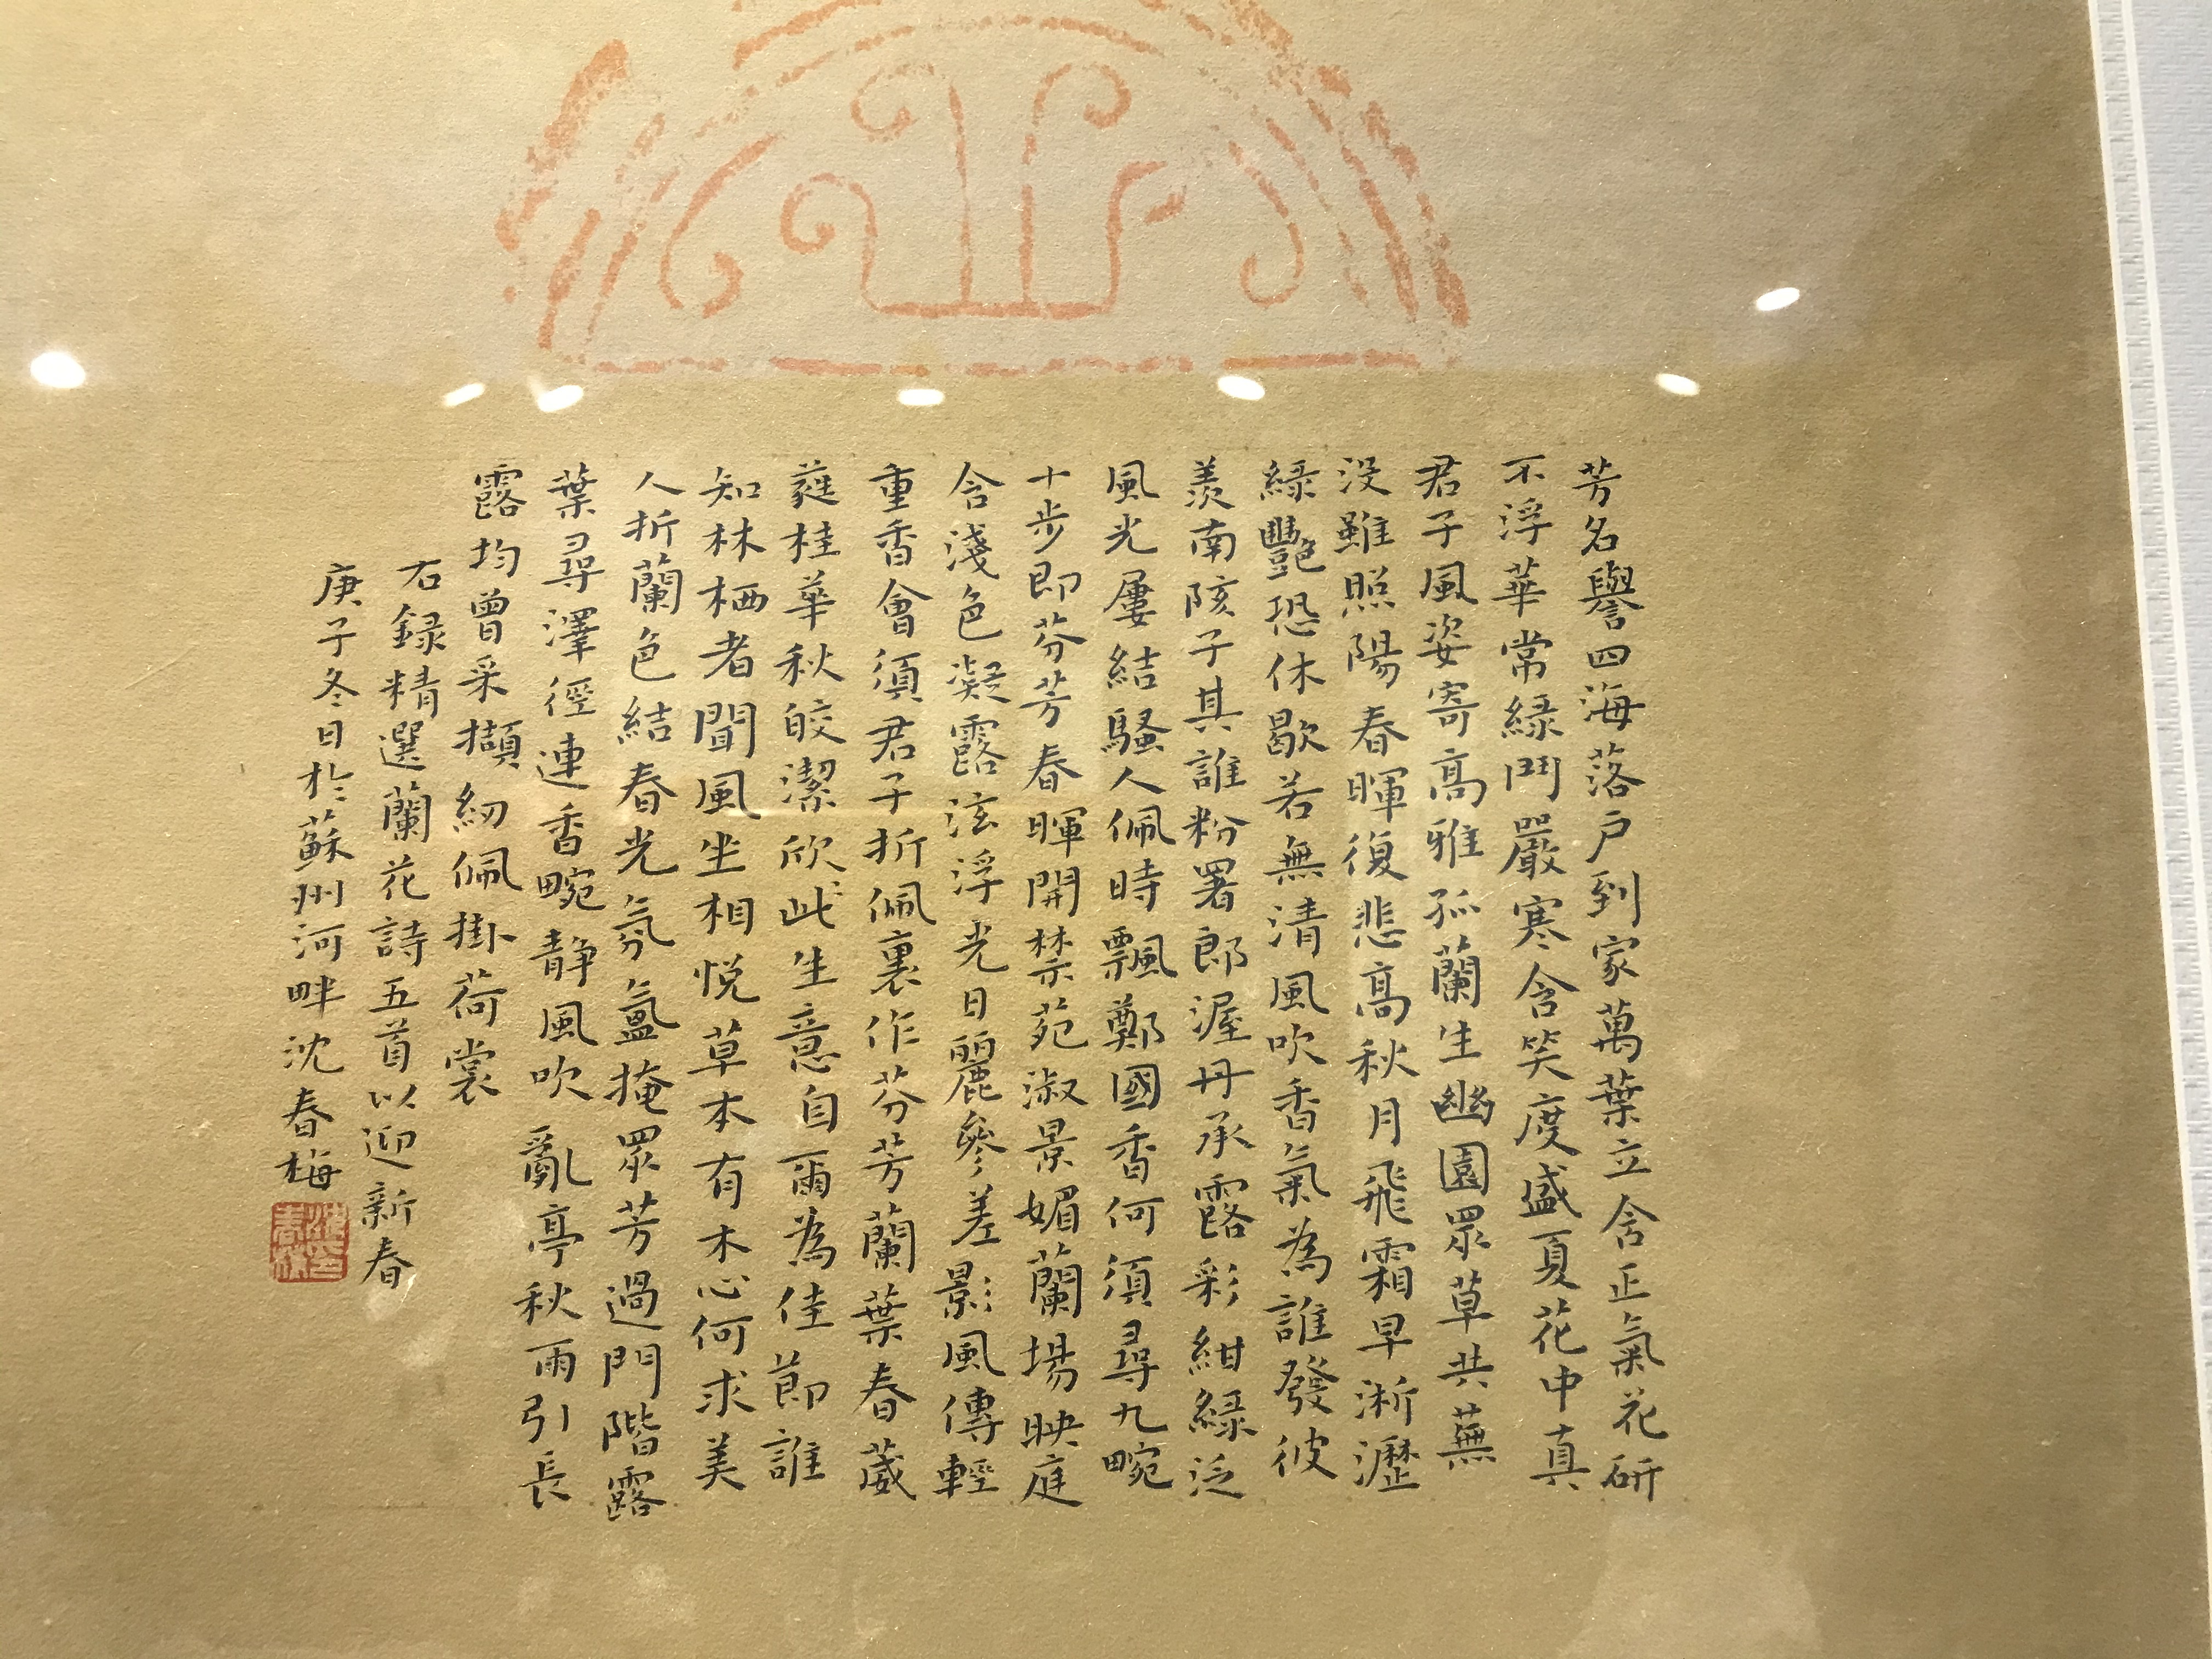 芳名譽四海落户到家萬葉立含正氣花研
不浮華常緑鬥嚴寒含笑度盛夏花中真
君子風姿寄高雅孤蘭生幽園眾草共蕪
没雖照陽春暉復悲高秋月飛霜早淅瀝
緑豔恐休歇若無清風吹香氣為誰發彼
羨南陔子其誰粉署郎渥丹承露彩紺緑泛
風光屢結騷人佩時飄鄭國香何須尋九畹
十步即芬芳春暉開禁苑淑景媚蘭場映庭
含淺色凝露泫浮光日麗參差影風傳輕
重香會須君子折佩裏作芬芳蘭葉春葳
蕤桂華秋皎潔欣此生意自爾為佳節誰
知林栖者聞風坐相悦草本有木心何求美
人折蘭色結春光氛氳掩眾芳過門階露
葉尋澤徑連香畹静風吹亂亭秋雨引長
露均曾采擷紉佩掛荷裳
右録精選蘭花詩五首以迎新春
庚子冬日於蘇州河畔沈春梅